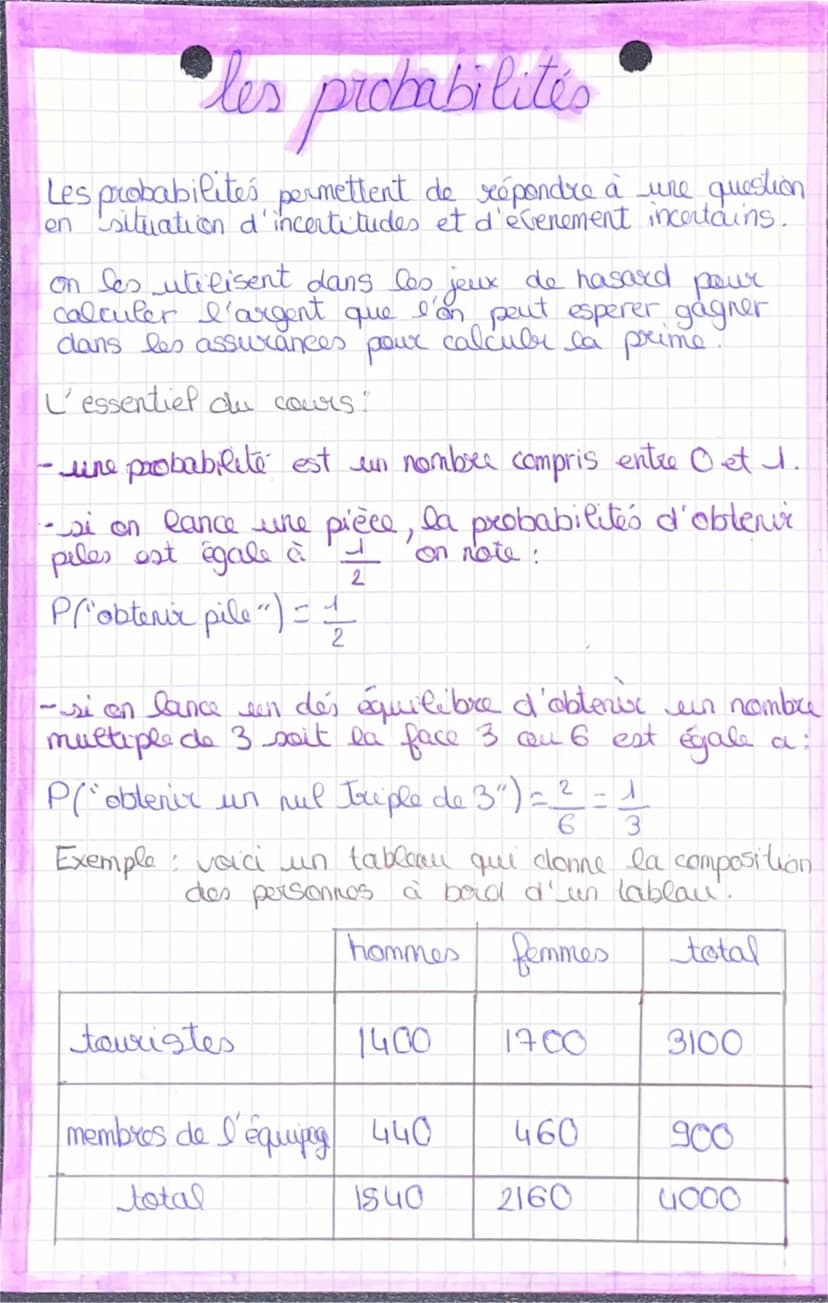 les probabilités
Les probabilités permettent de répondre à une question
en situation d'incertitudes et d'évenement incertains.
on les utilisent dans les jeux de hasard pour
calculer l'argent que l'on peut esperer gagner
dans les assurances pour calculer la prime.
L'essentiel du cours:
- une probabilité est un nombre compris entre 0 et 1.
- si on lance une pièce, la probabilités d'obtenir
piles est égale à 1/2 on note :
P("obtenir pile") = 1/2
- si on lance un dés équilibre d'obtenir un nombre
multiple de 3 soit la face 3 ou 6 est égale a :
P("obtenir un mul Triple de 3") = 2/6 = 1/3
Exemple : voici un tableau qui donne la composition
des personnes à bord d'un tableau.
hommes femmes total
touristes 1400 1700 3100
membres de l'équipag 440 460 900
total 1840 2160 4000